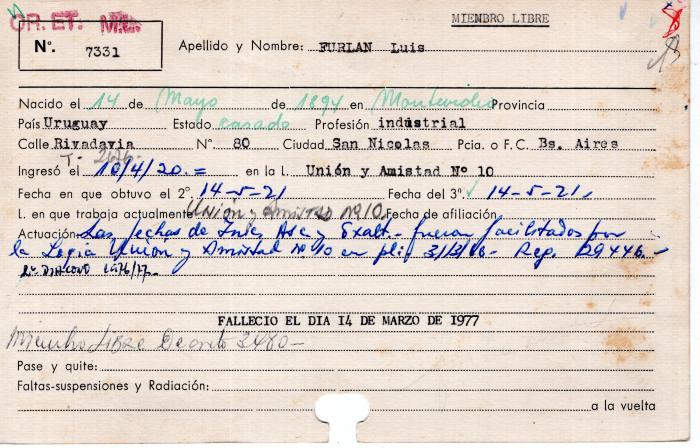 MIEMBRO LIBRE
GR. ET. M.L.
Nº. 7331
Apellido y Nombre: FURLAN Luis
Nacido el 14 de Mayo de 1894 en Montevideo Provincia
País Uruguay Estado casado Profesión industrial
Calle Rivadavia Nº. 80 Ciudad San Nicolas Pcia. o F.C. Bs. Aires
Ingresó el 10/4/20.= en la L. Unión y Amistad Nº 10
Fecha en que obtuvo el 2º. 14-5-21 Fecha del 3º. 14-5-21
L. en que trabaja actualmente Unión y Amistad Nº 10 Fecha de afiliación
Actuación Las fechas de Inic. Asc. y Exalt. fueron facilitados por
la Logia Unión y Amistad Nº 10 en pl. 3/3/66- Reg. 129446.-
2º DIACONO 1976/77.-
FALLECIO EL DIA 14 DE MARZO DE 1977
Miembro Libre Decreto 3480-
Pase y quite:
Faltas-suspensiones y Radiación:
a la vuelta